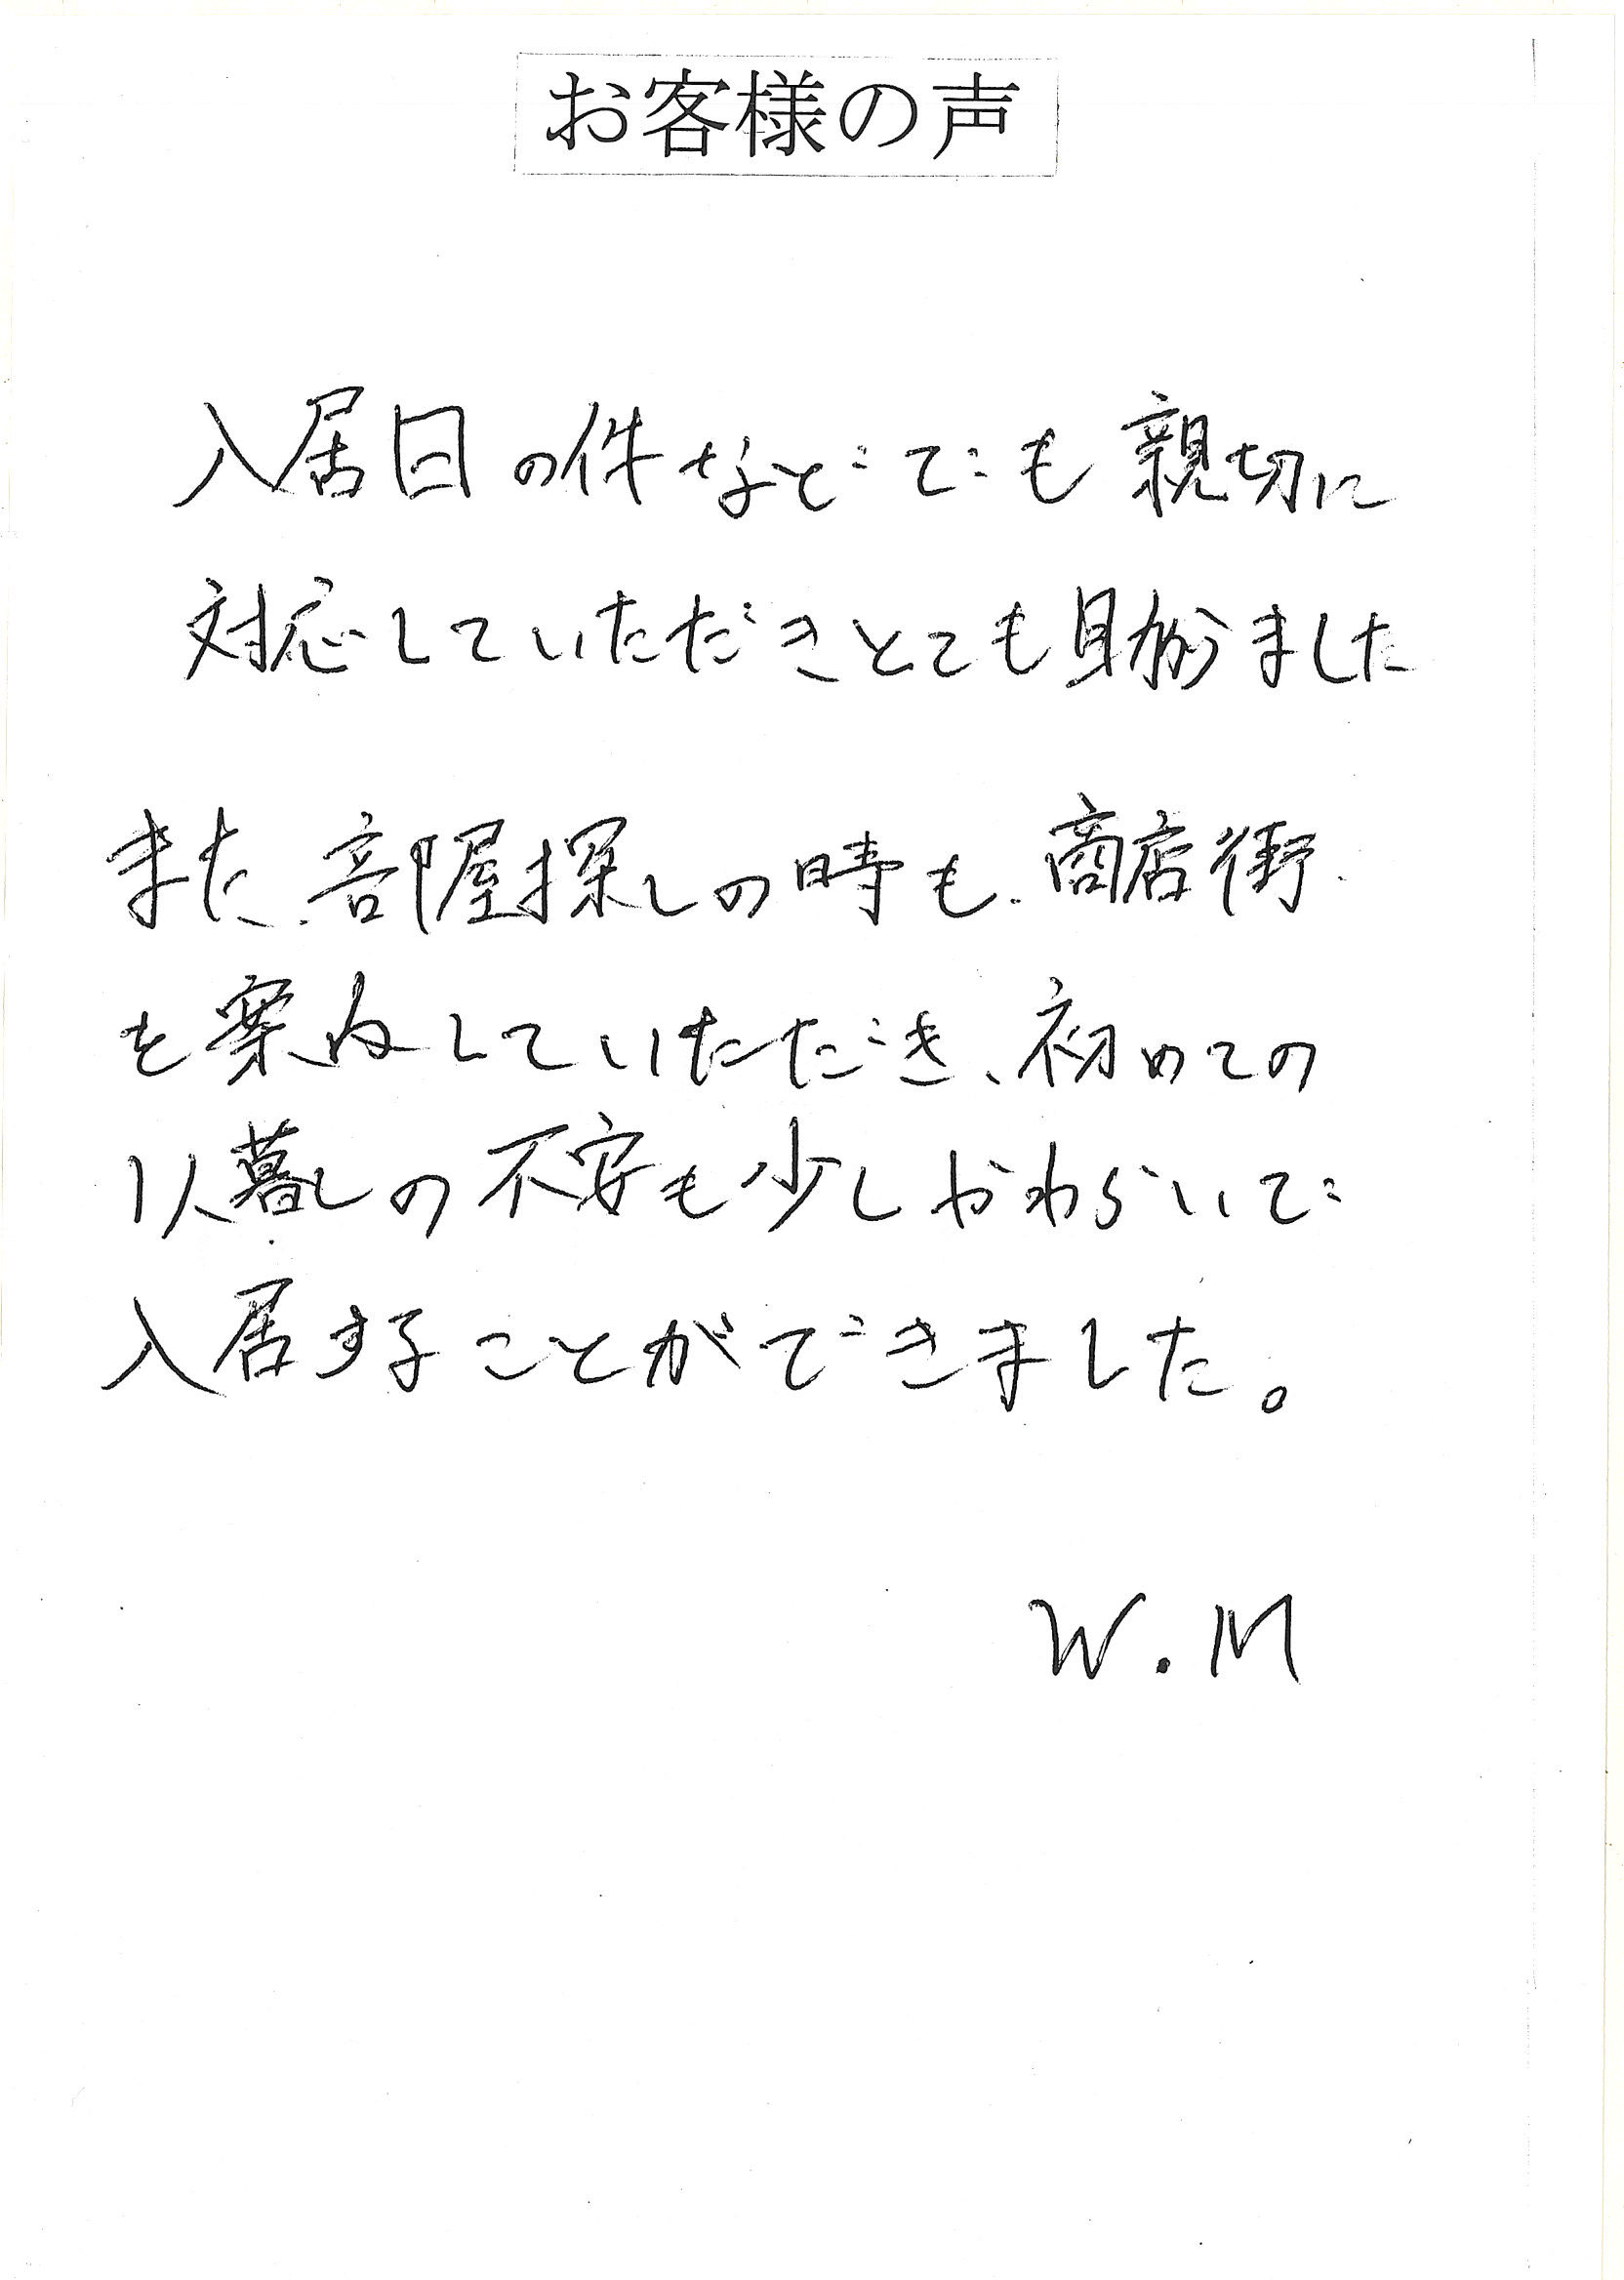 お客様の声
入居日の件などでも親切に
対応していただきとても助かりました
また、部屋探しの時も、商店街
を案内していただき、初めての
1人暮しの不安も少しやわらいで
入居することができました。
W.M